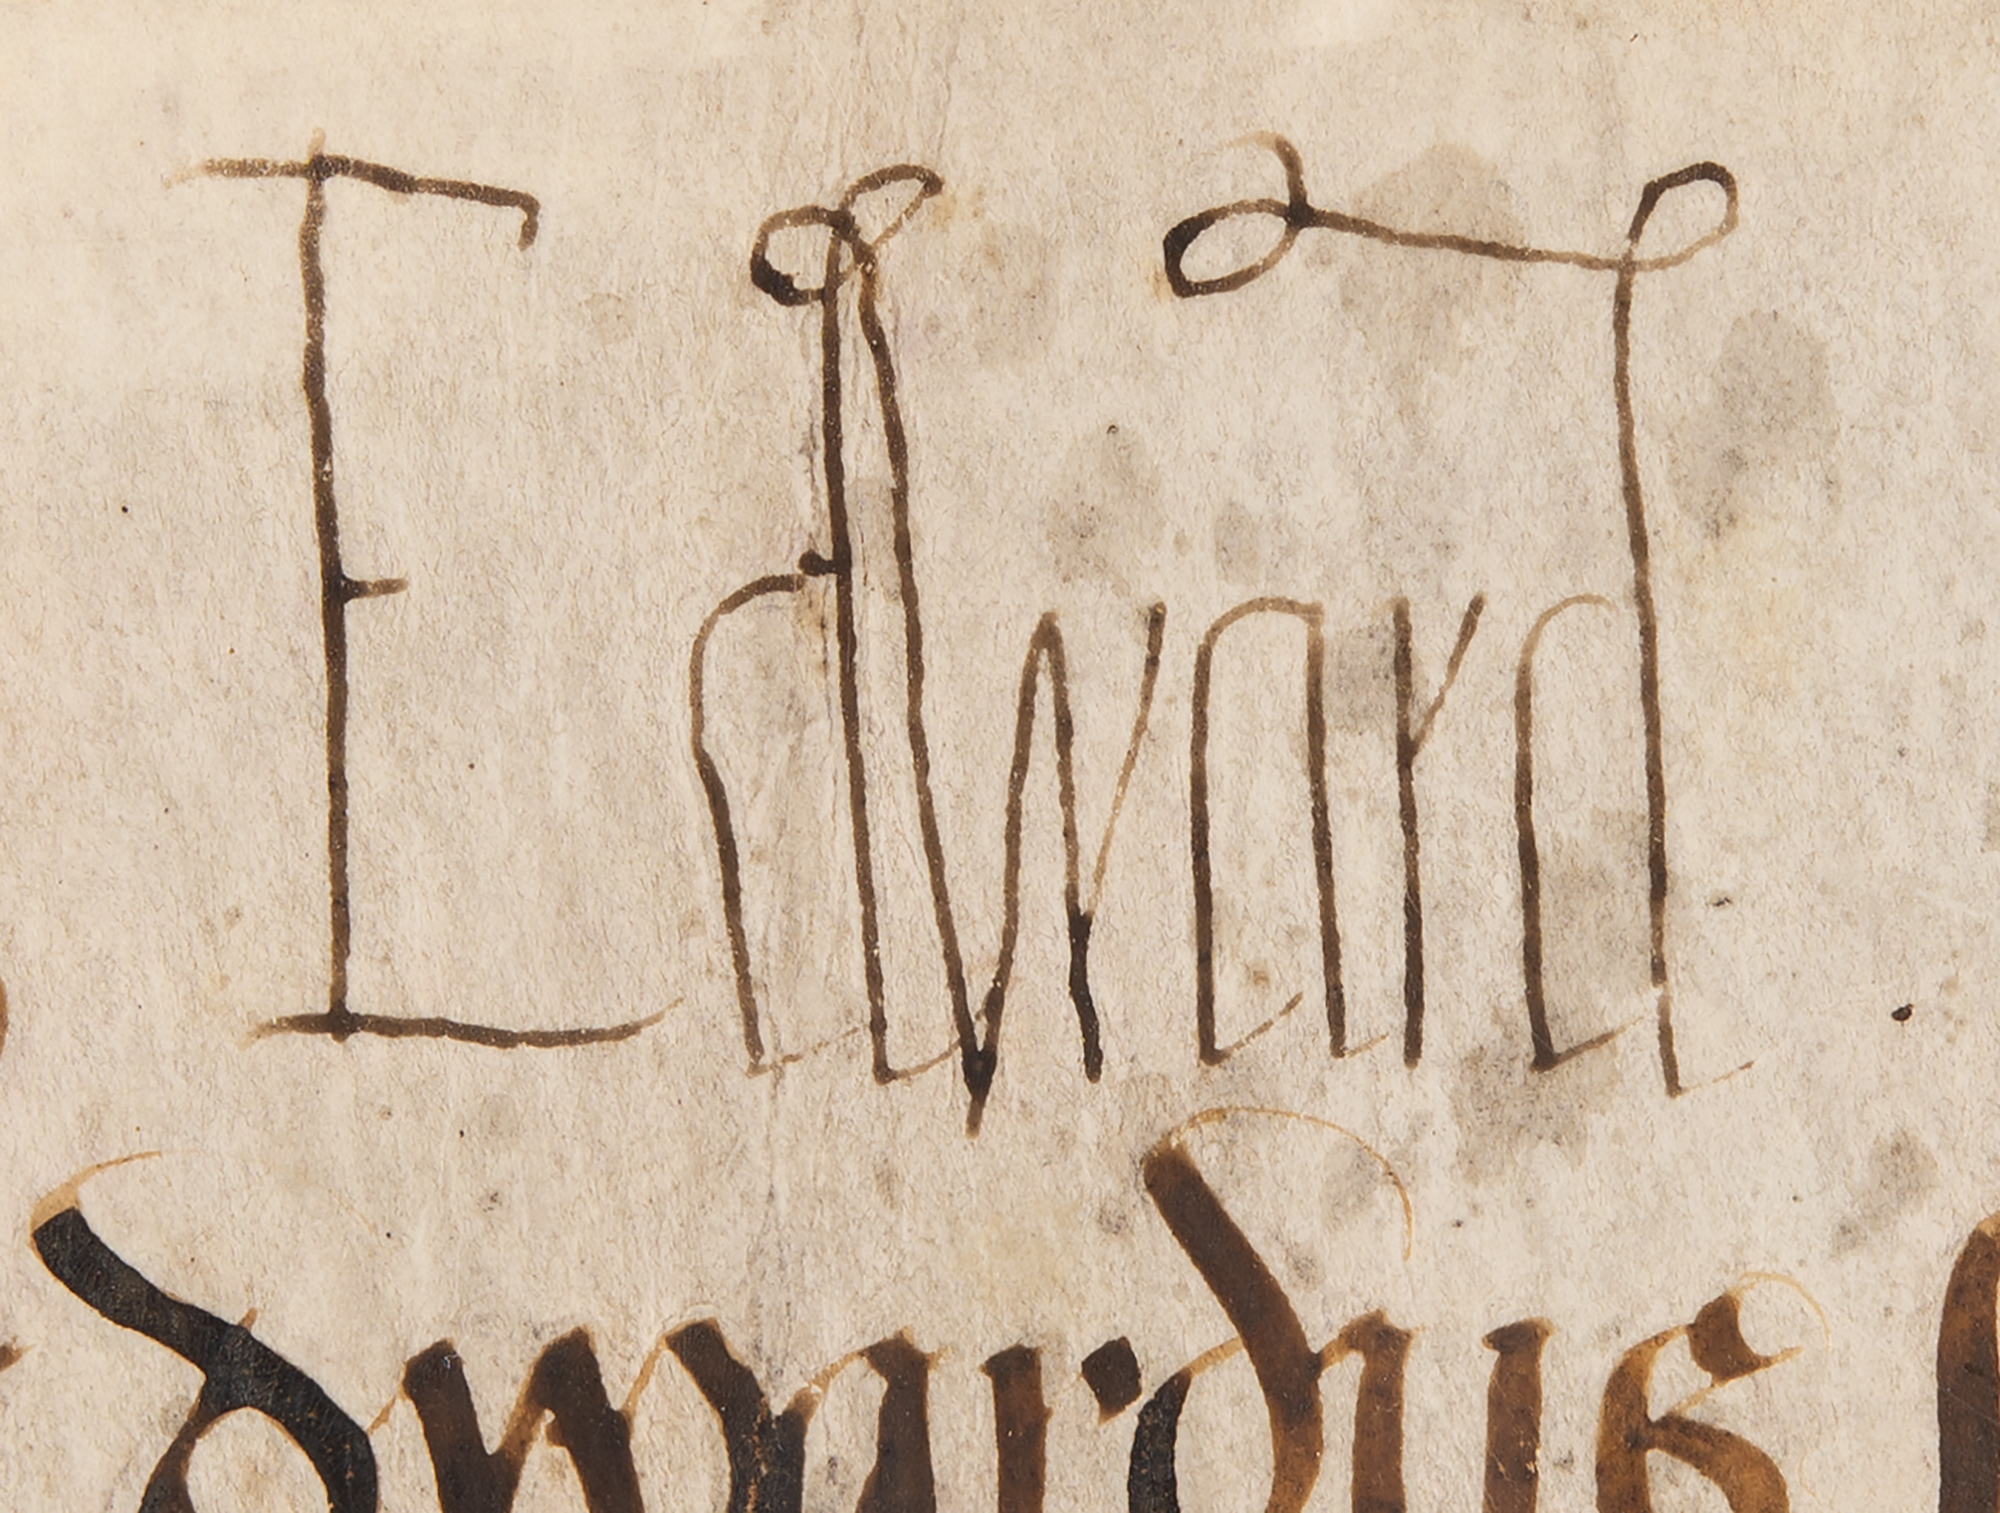 Edward
dwardus